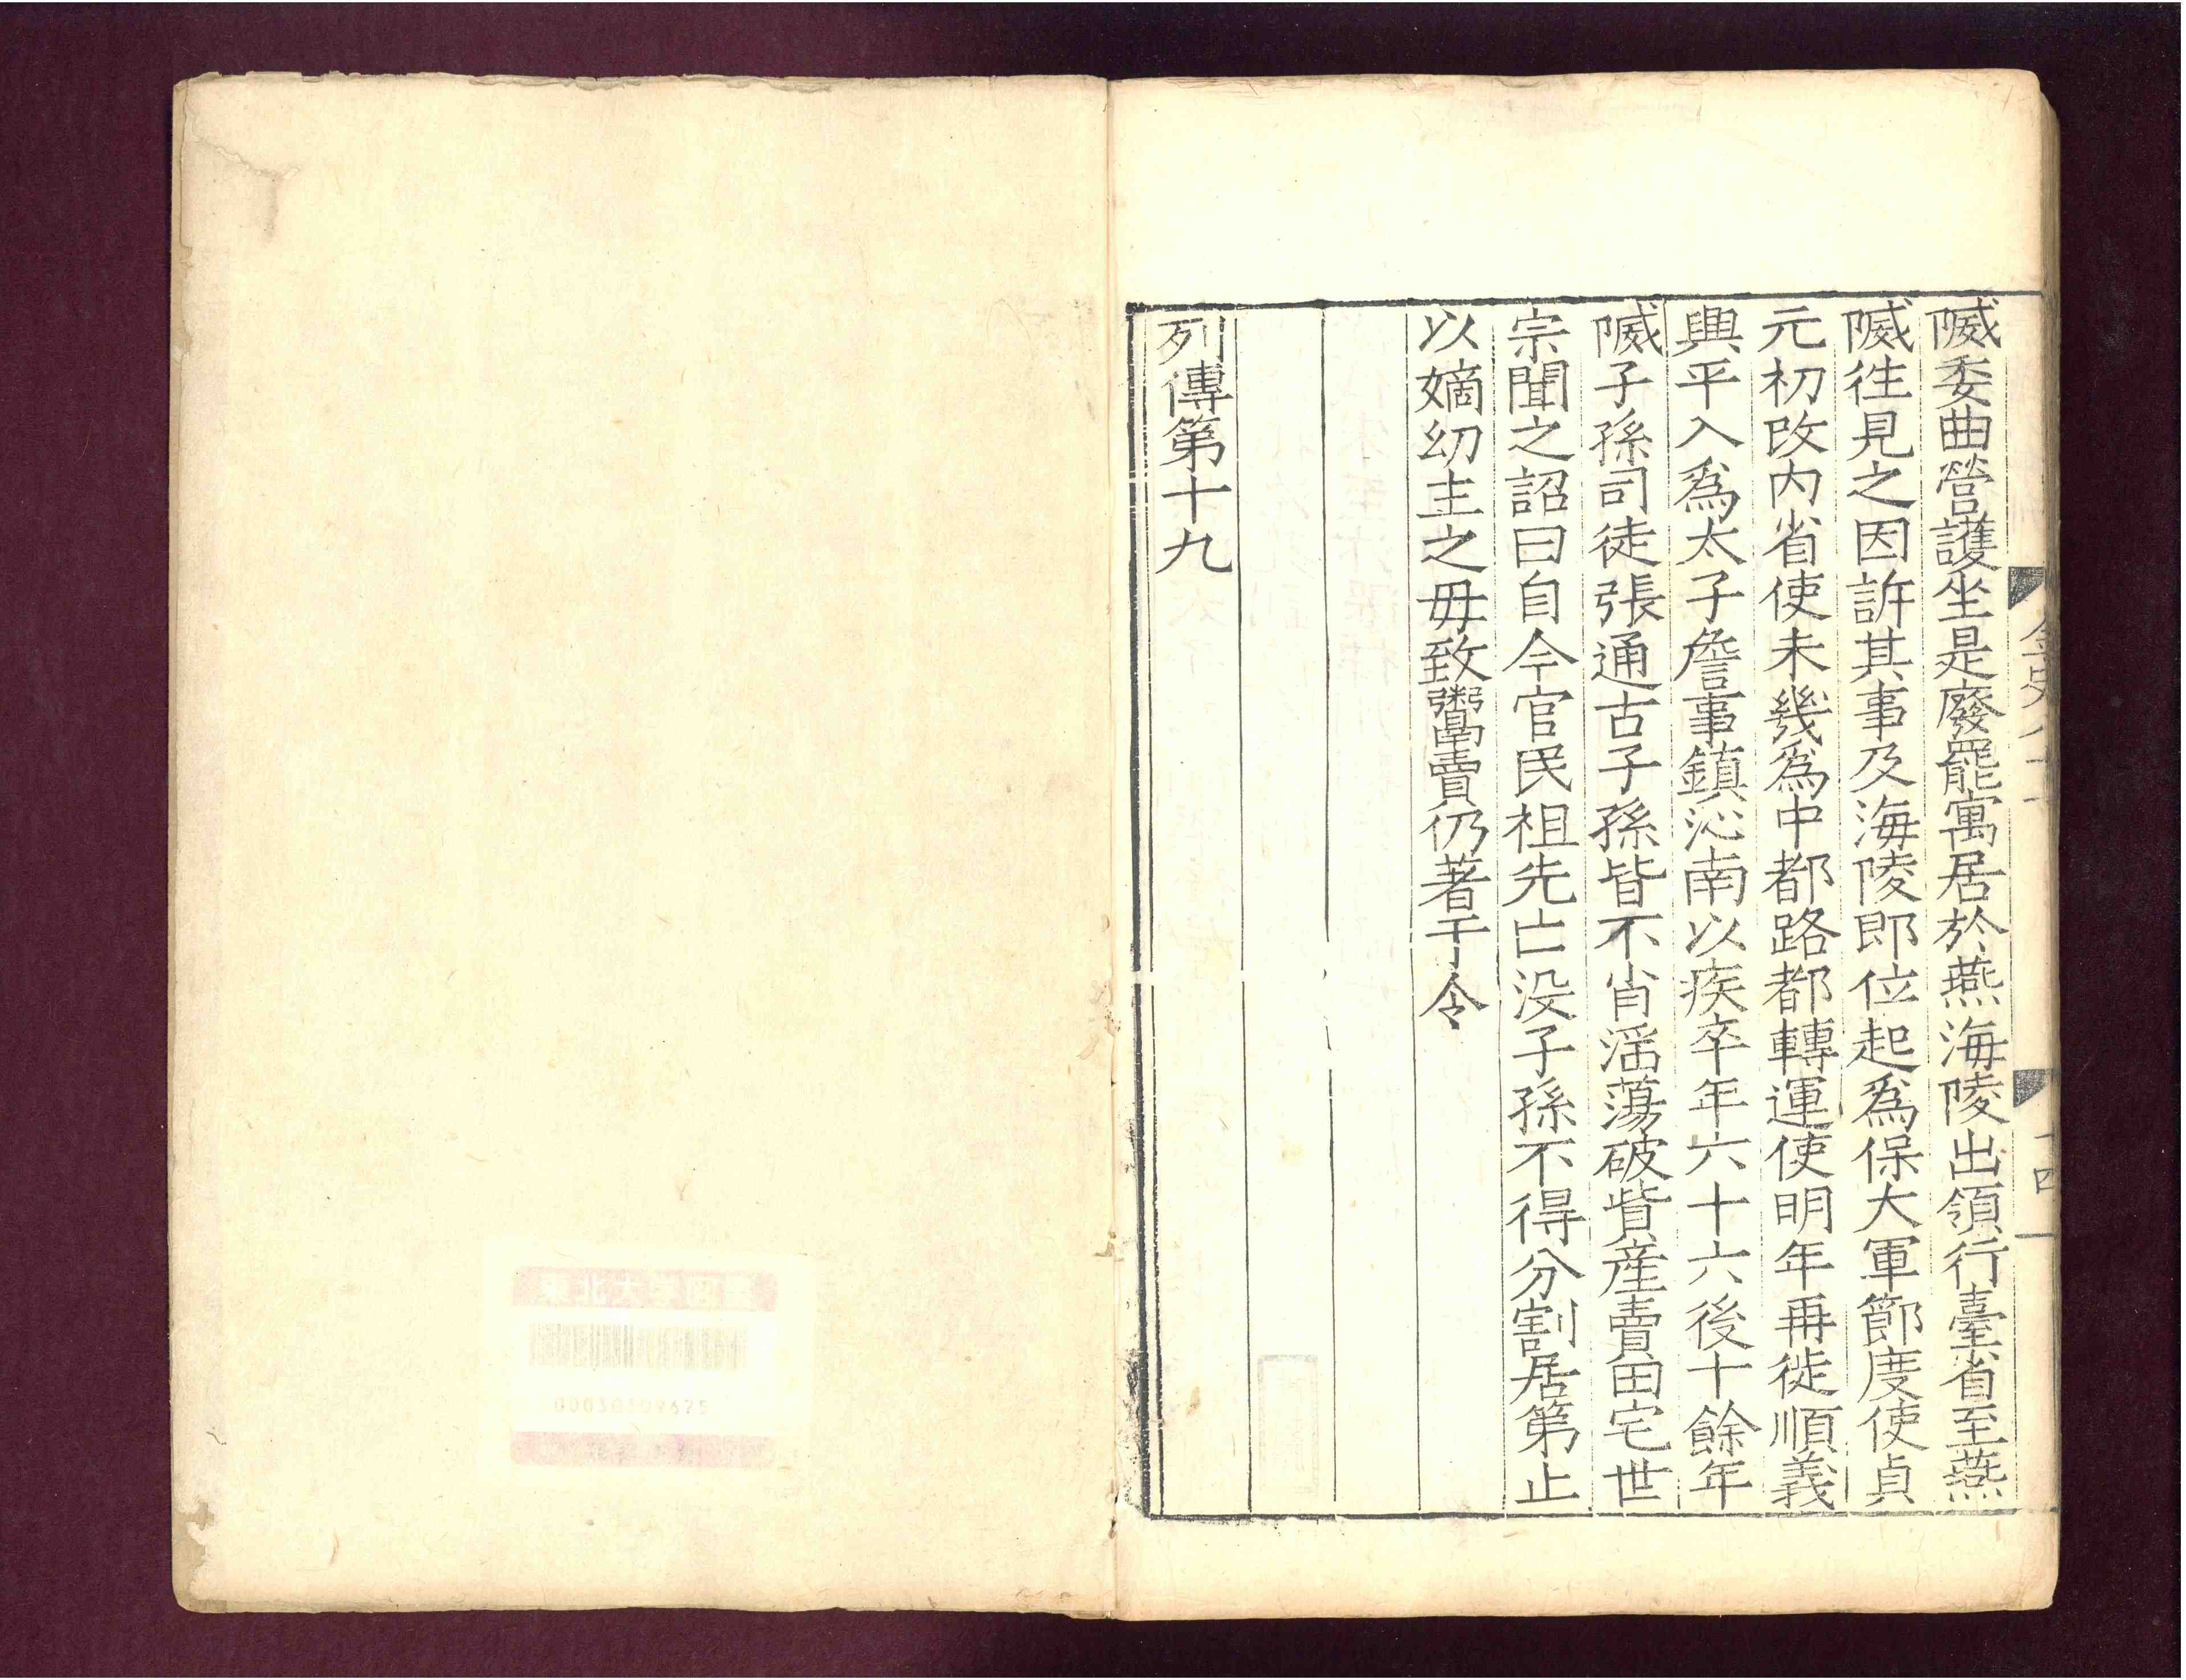 隇委曲營護坐是廢罷寓居於燕海陵出領行臺省至燕
隇徃見之因訴其事及海陵即位起爲保大軍節度使貞
元初改内省使未幾爲中都路都轉運使明年再徙順義
興平入爲太子詹事鎮沁南以疾卒年六十六後十餘年
隇子孫司徒張通古子孫皆不肖滛蕩破貲産賣田宅世
宗聞之詔曰自今官民祖先亡没子孫不得分割居第止
以嫡幼主之毋致鬻賣仍著于令
列傳第十九